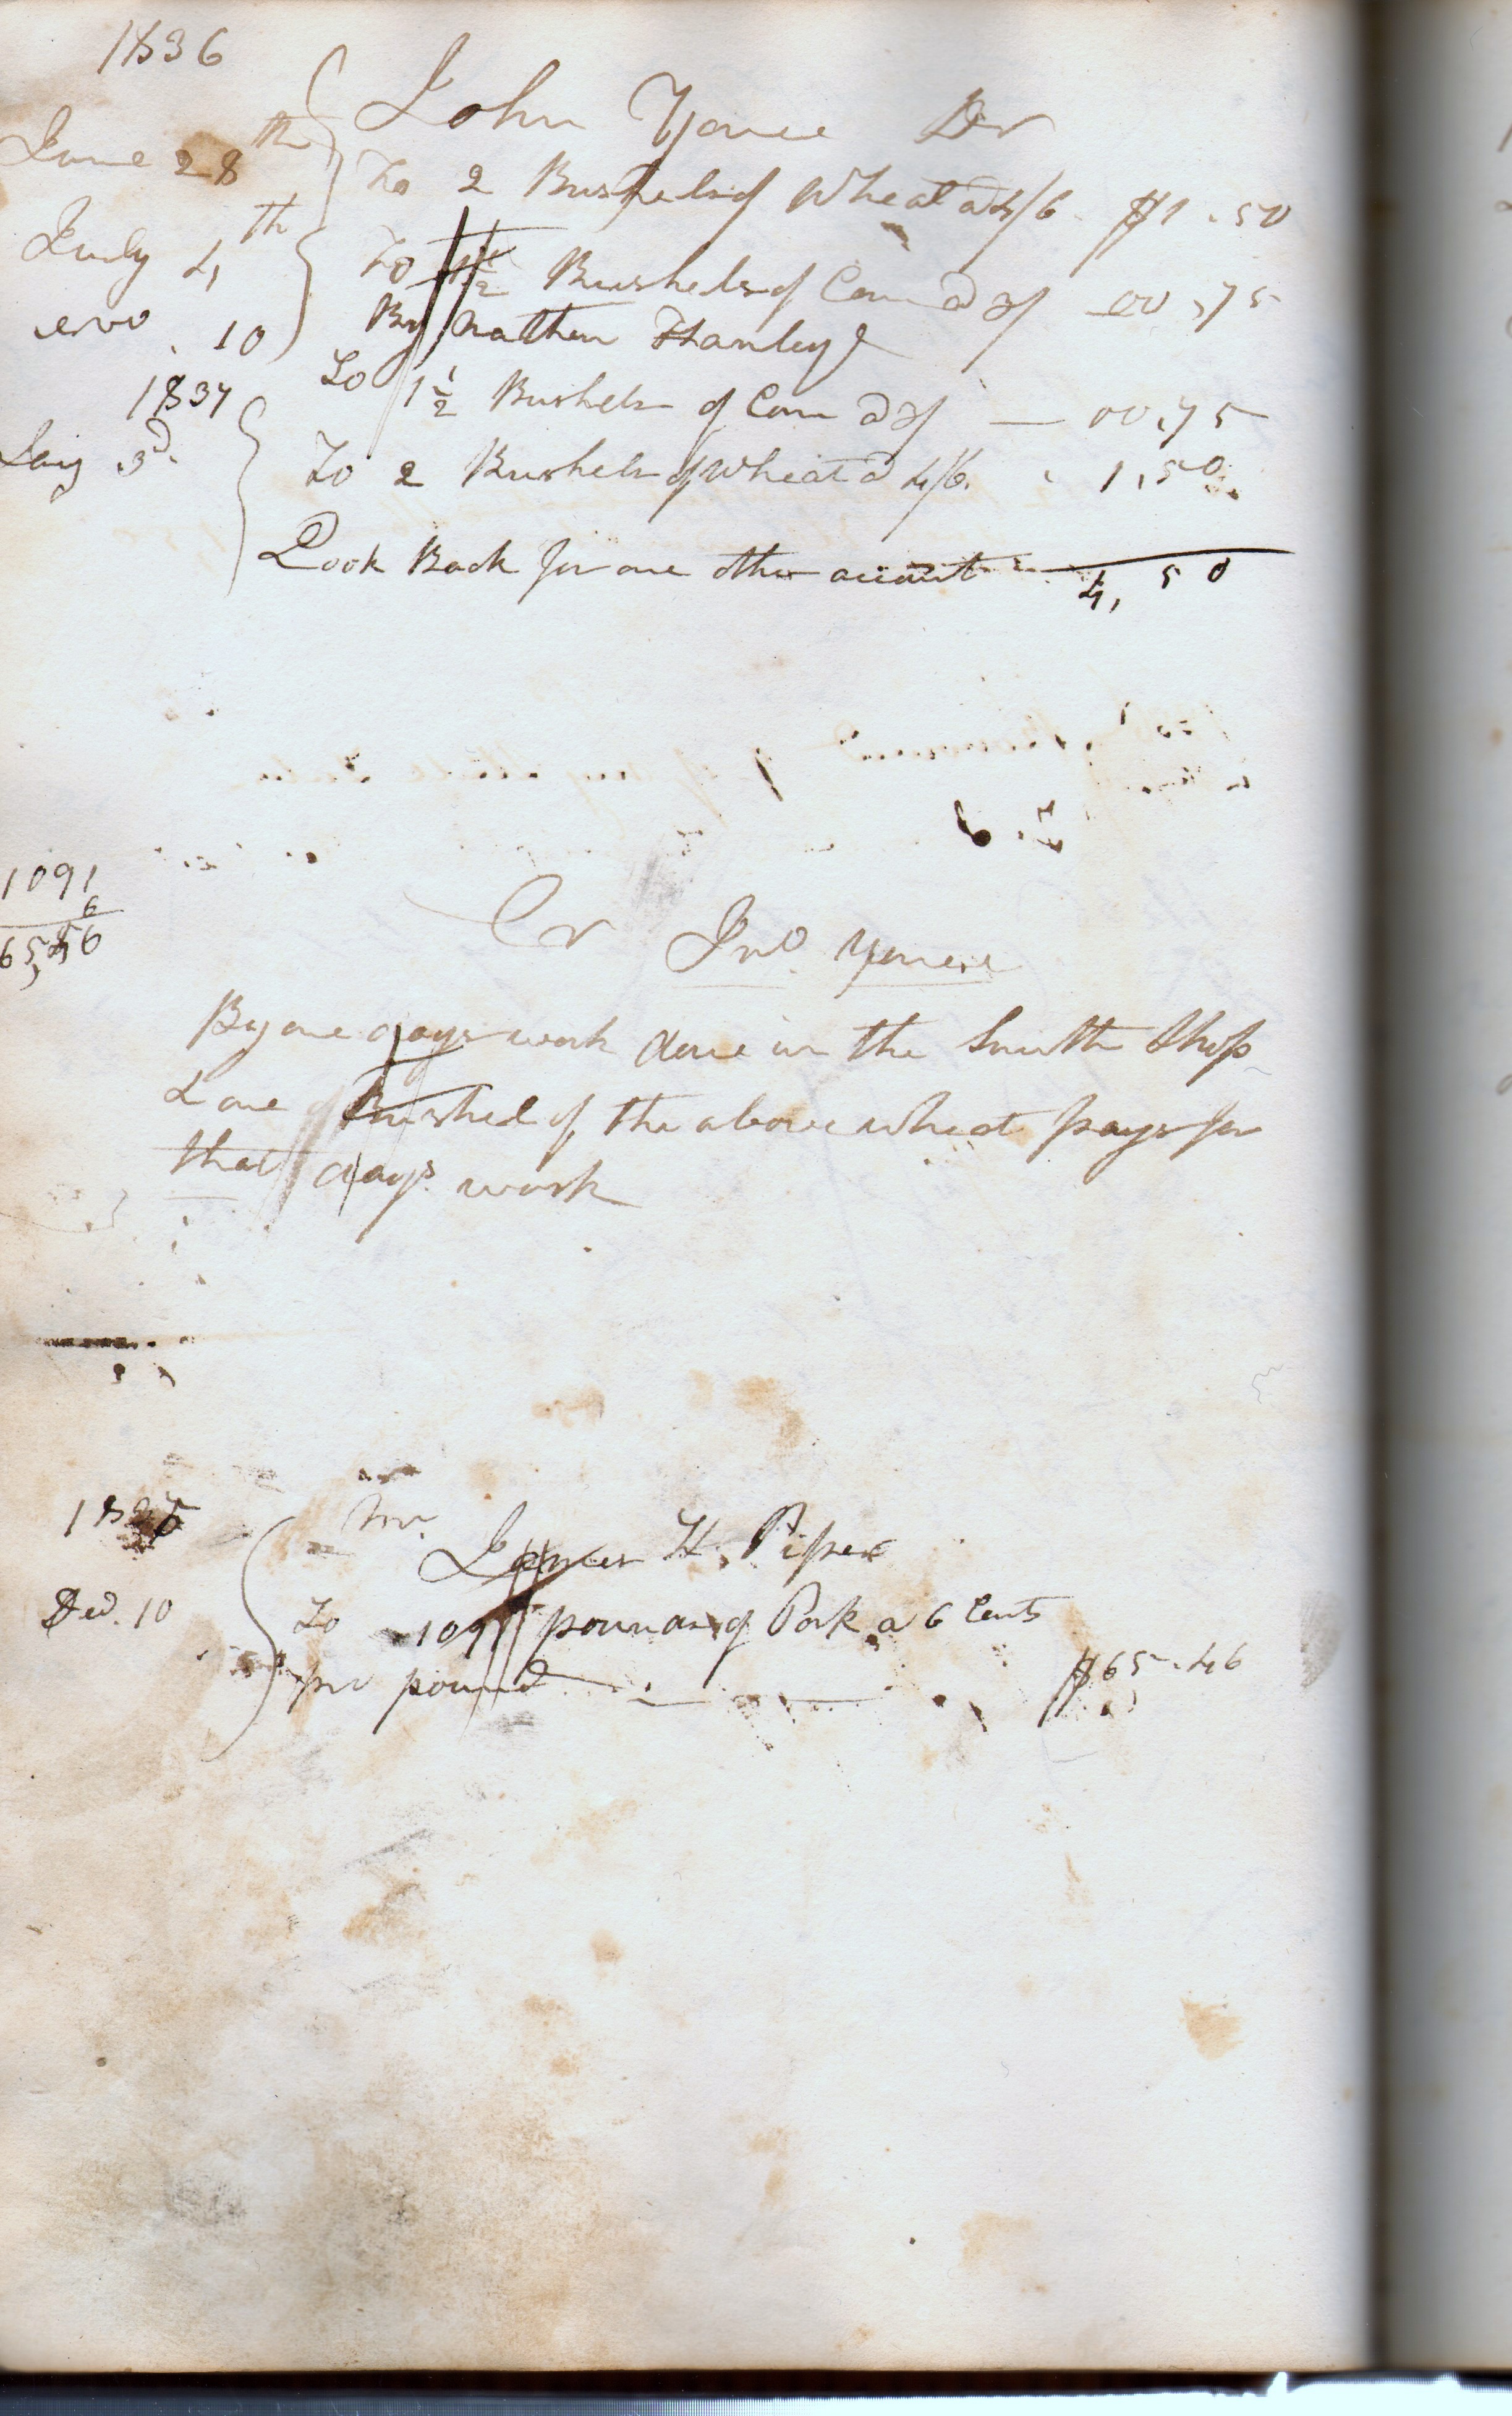 1836
John Younce Dr
June 28th To 2 Bushels of Wheat a 4/6 $1.50
July 4th To 1 1/2 Bushels of Corn a 3/ 00,75
By Nathan Hanley
10 To 1 1/2 Bushels of Corn a 3/ — 00,75
1837
3d. To 2 Bushels of Wheat a 4/6. 1,50
Look Back for one other account 4,50
1091
6
65,46
Cr Jno. Younce
By one days work done in the Smith Shop
& one Bushel of the above wheat pays for
that days work
Mr.
James H. Piper
Ded. 10 To 1091 pounds of Pork a 6 Cents
per pound $65.46